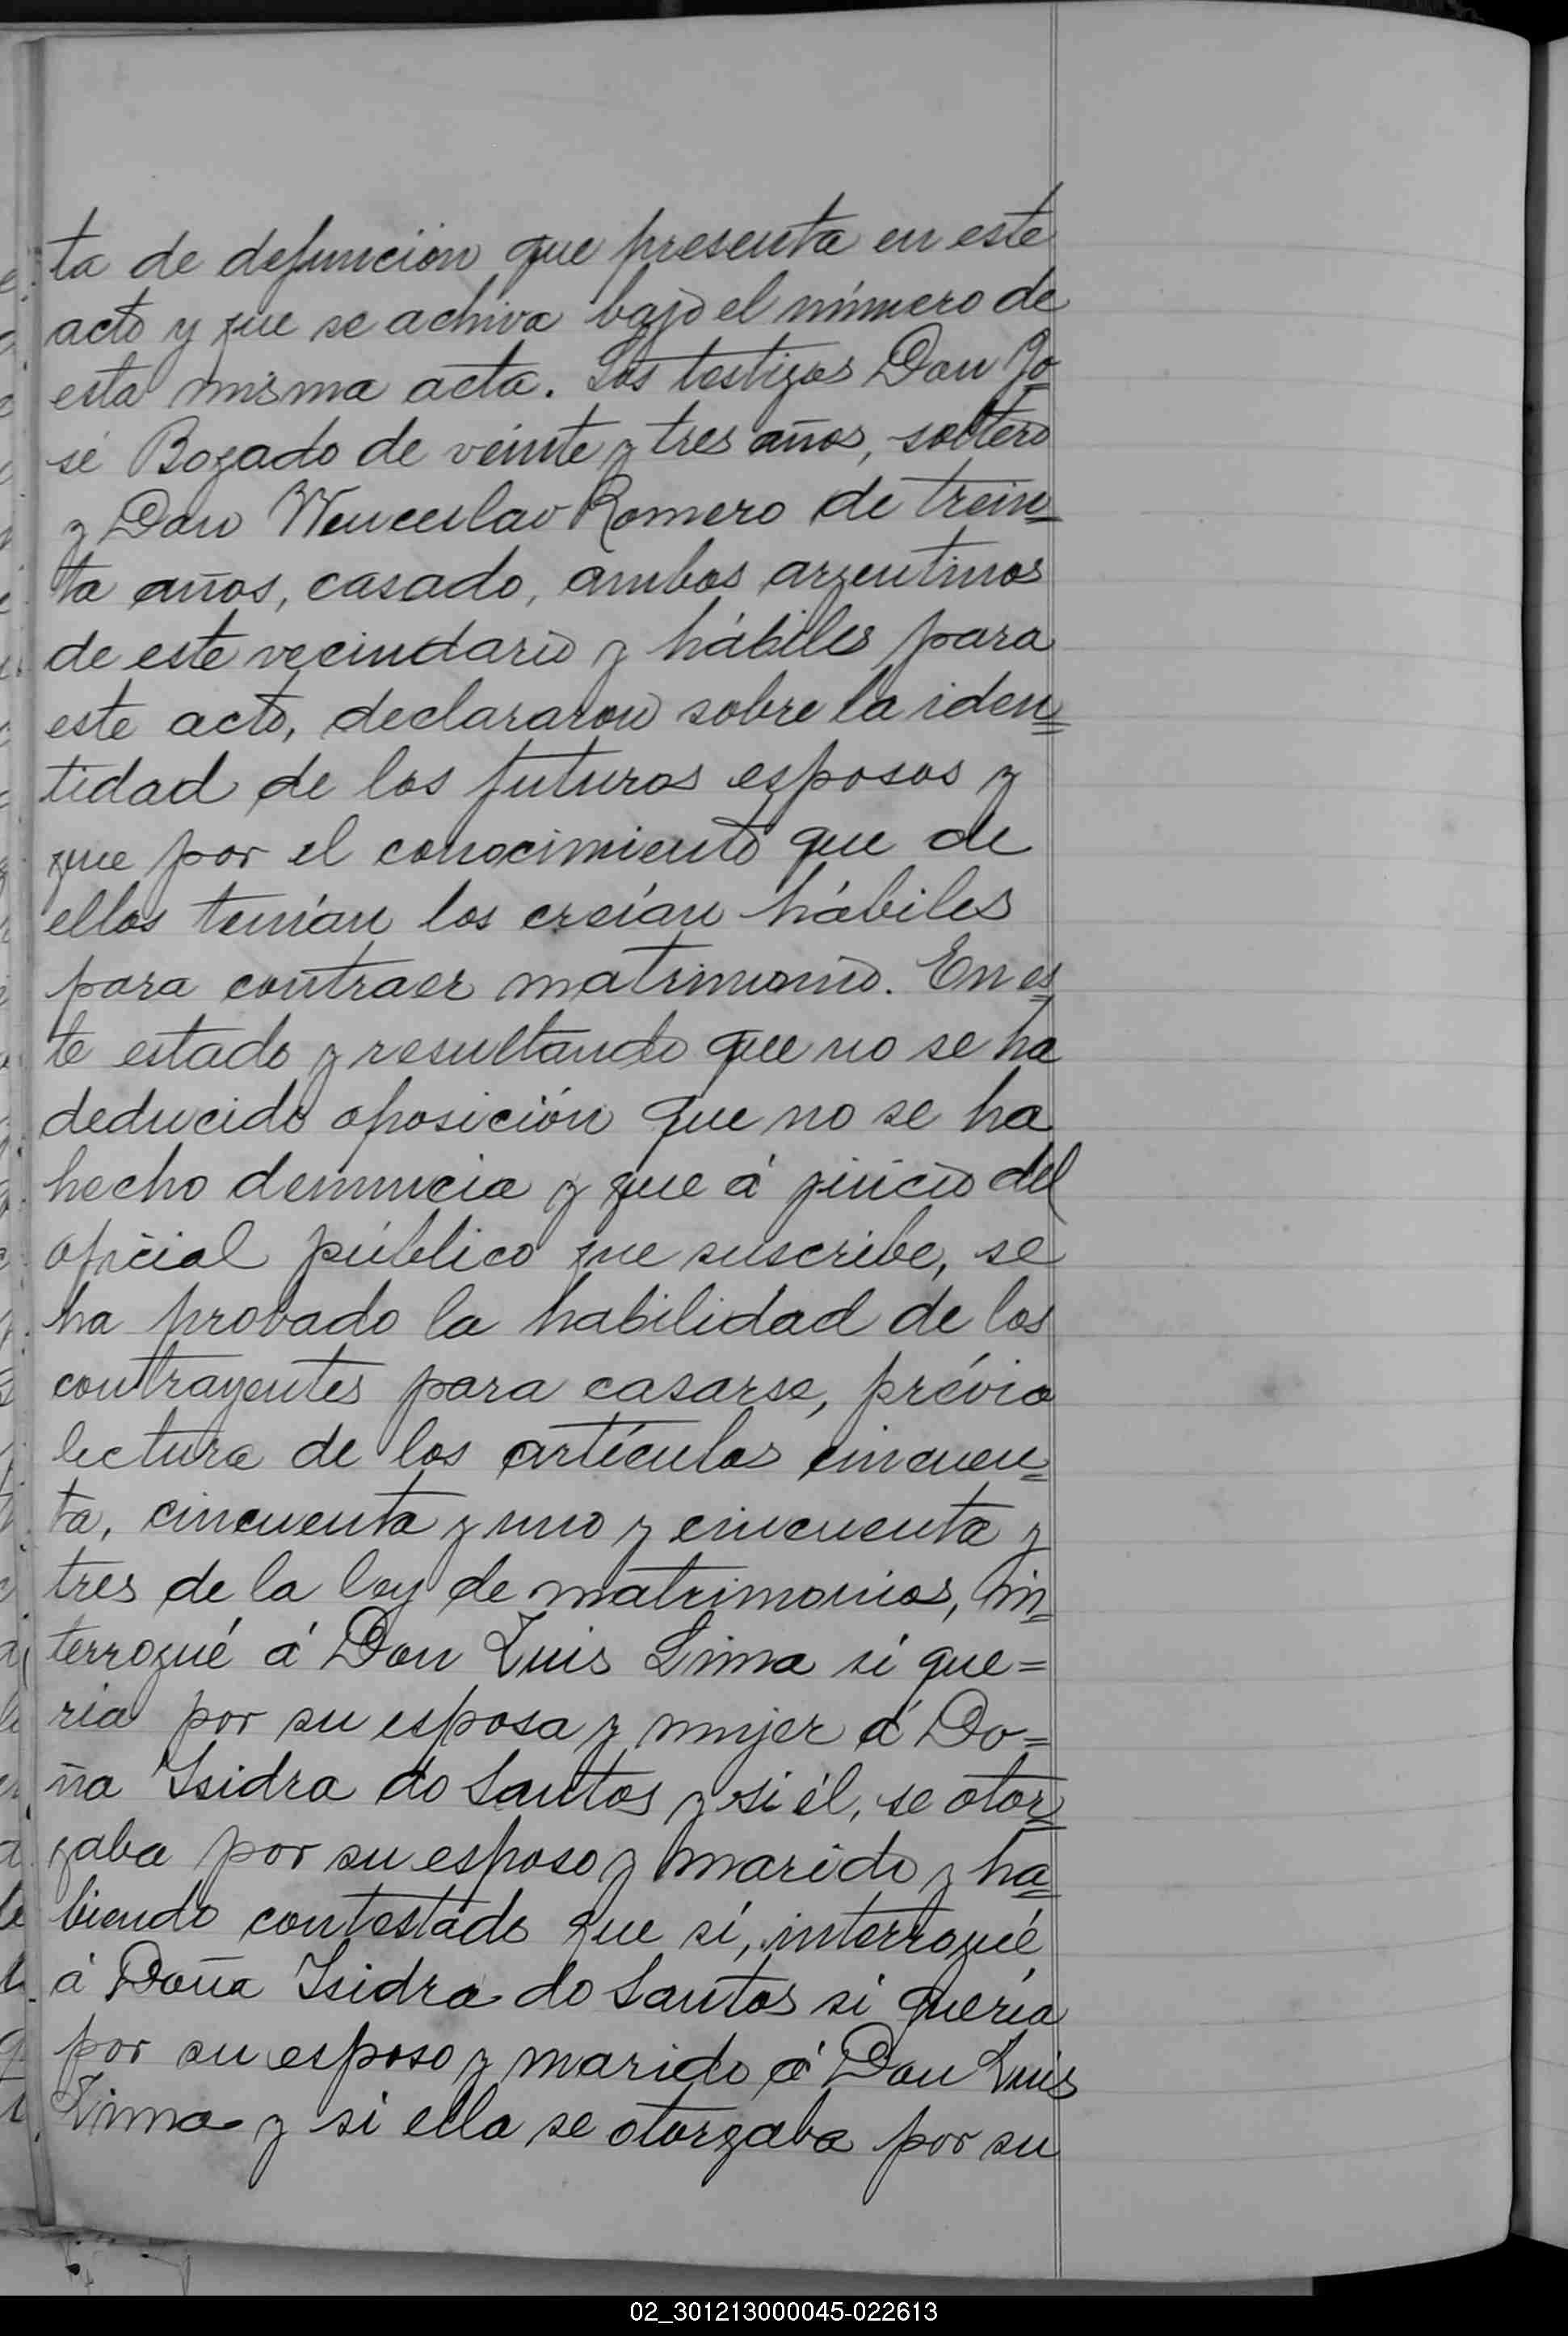 ta de defunción que presenta en este
acto y que se achiva bajo el número de
esta misma acta. Los testigos Don Jo-
sé Bogado de veinte y tres años, soltero
y Don Wenceslao Romero de trein-
ta años, casado, ambos argentinos
de este vecindario y hábiles para
este acto, declararon sobre la iden=
tidad de los futuros esposos y
que por el conocimiento que de
ellos tenían los creían hábiles
para contraer matrimonio. En es=
te estado y resultando que no se ha
deducido oposición que no se ha
hecho denuncia y que á juicio del
oficial público que suscribe, se
ha probado la habilidad de los
contrayentes para casarse, prévia
lectura de los artículos cincuen=
ta, cincuenta y uno y cincuenta y
tres de la ley de matrimonios, in=
terrogué á Don Luis Lima si que=
ria por su esposa y mujer á Do=
ña Isidra do Santos y si él, se otor=
gaba por su esposo y marido y ha=
biendo contestado que sí, interrogué
á Doña Isidra do Santos si quería
por su esposo y marido á Don Luis
Lima y si ella se otorgaba por su
02_301213000045-022613